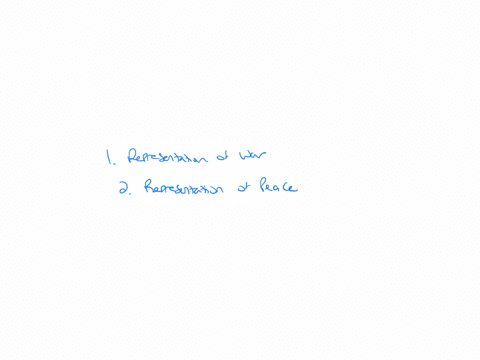 1. Representation of war
2. Representation of Peace